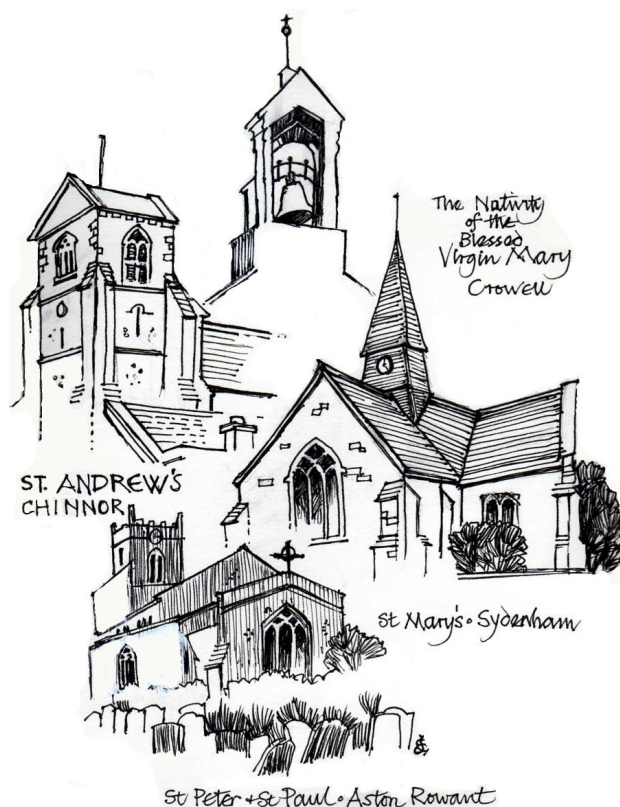 The Nativity
of the
Blessed
Virgin Mary
Crowell
ST. ANDREW'S
CHINNOR
St Mary's • Sydenham
St Peter + St Paul • Aston Rowant